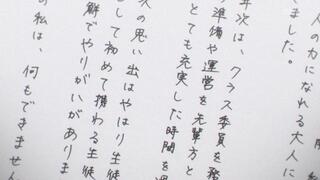 人の力になれる大人に
ました。
年次は、クラス委員を務
準備や運営を先輩方と
とても充実した時間を過
の思い出はやはり生徒
して初めて携わる生徒
鮮でやりがいがありま
の私は、何もできません